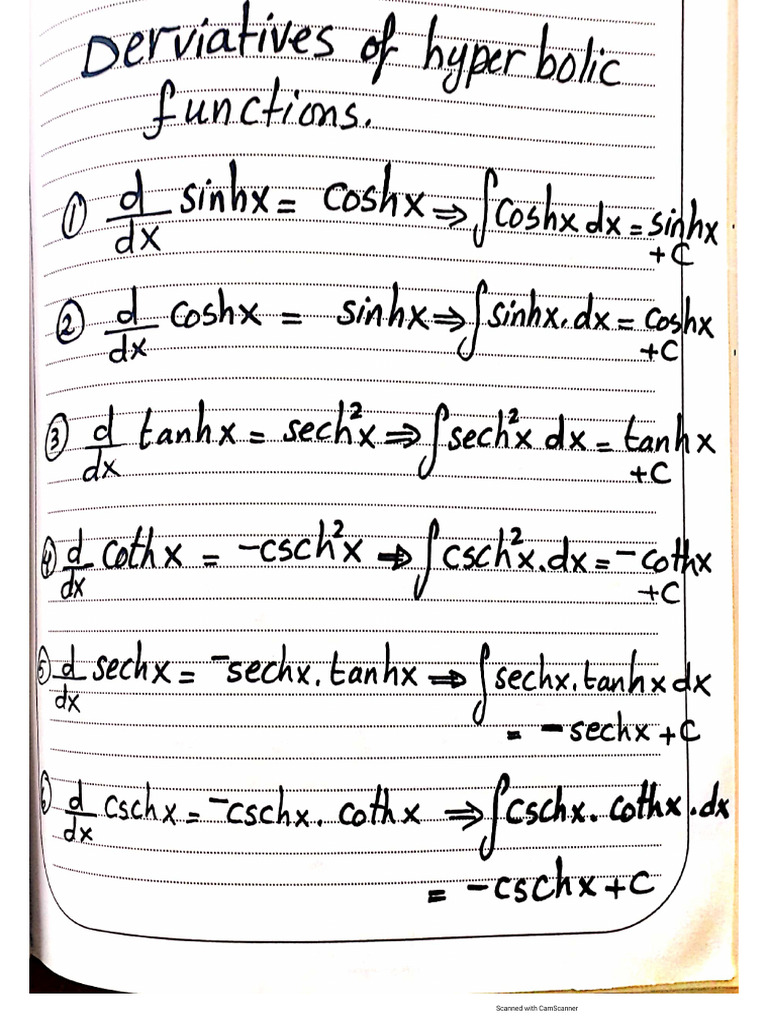 Derviatives of hyperbolic
functions.
① d/dx sinhx = coshx ⇒ ∫coshx dx = sinhx
+C
② d/dx coshx = sinhx ⇒ ∫sinhx. dx = coshx
+C
③ d/dx tanhx = sech²x ⇒ ∫sech²x dx = tanhx
+C
④ d/dx cothx = -csch²x ⇒ ∫csch²x.dx = -cothx
+C
⑤ d/dx sechx = -sechx. tanhx ⇒ ∫sechx. tanhx dx
= -sechx + C
⑥ d/dx cschx = -cschx. cothx ⇒ ∫cschx. cothx .dx
= -cschx + C
Scanned with CamScanner